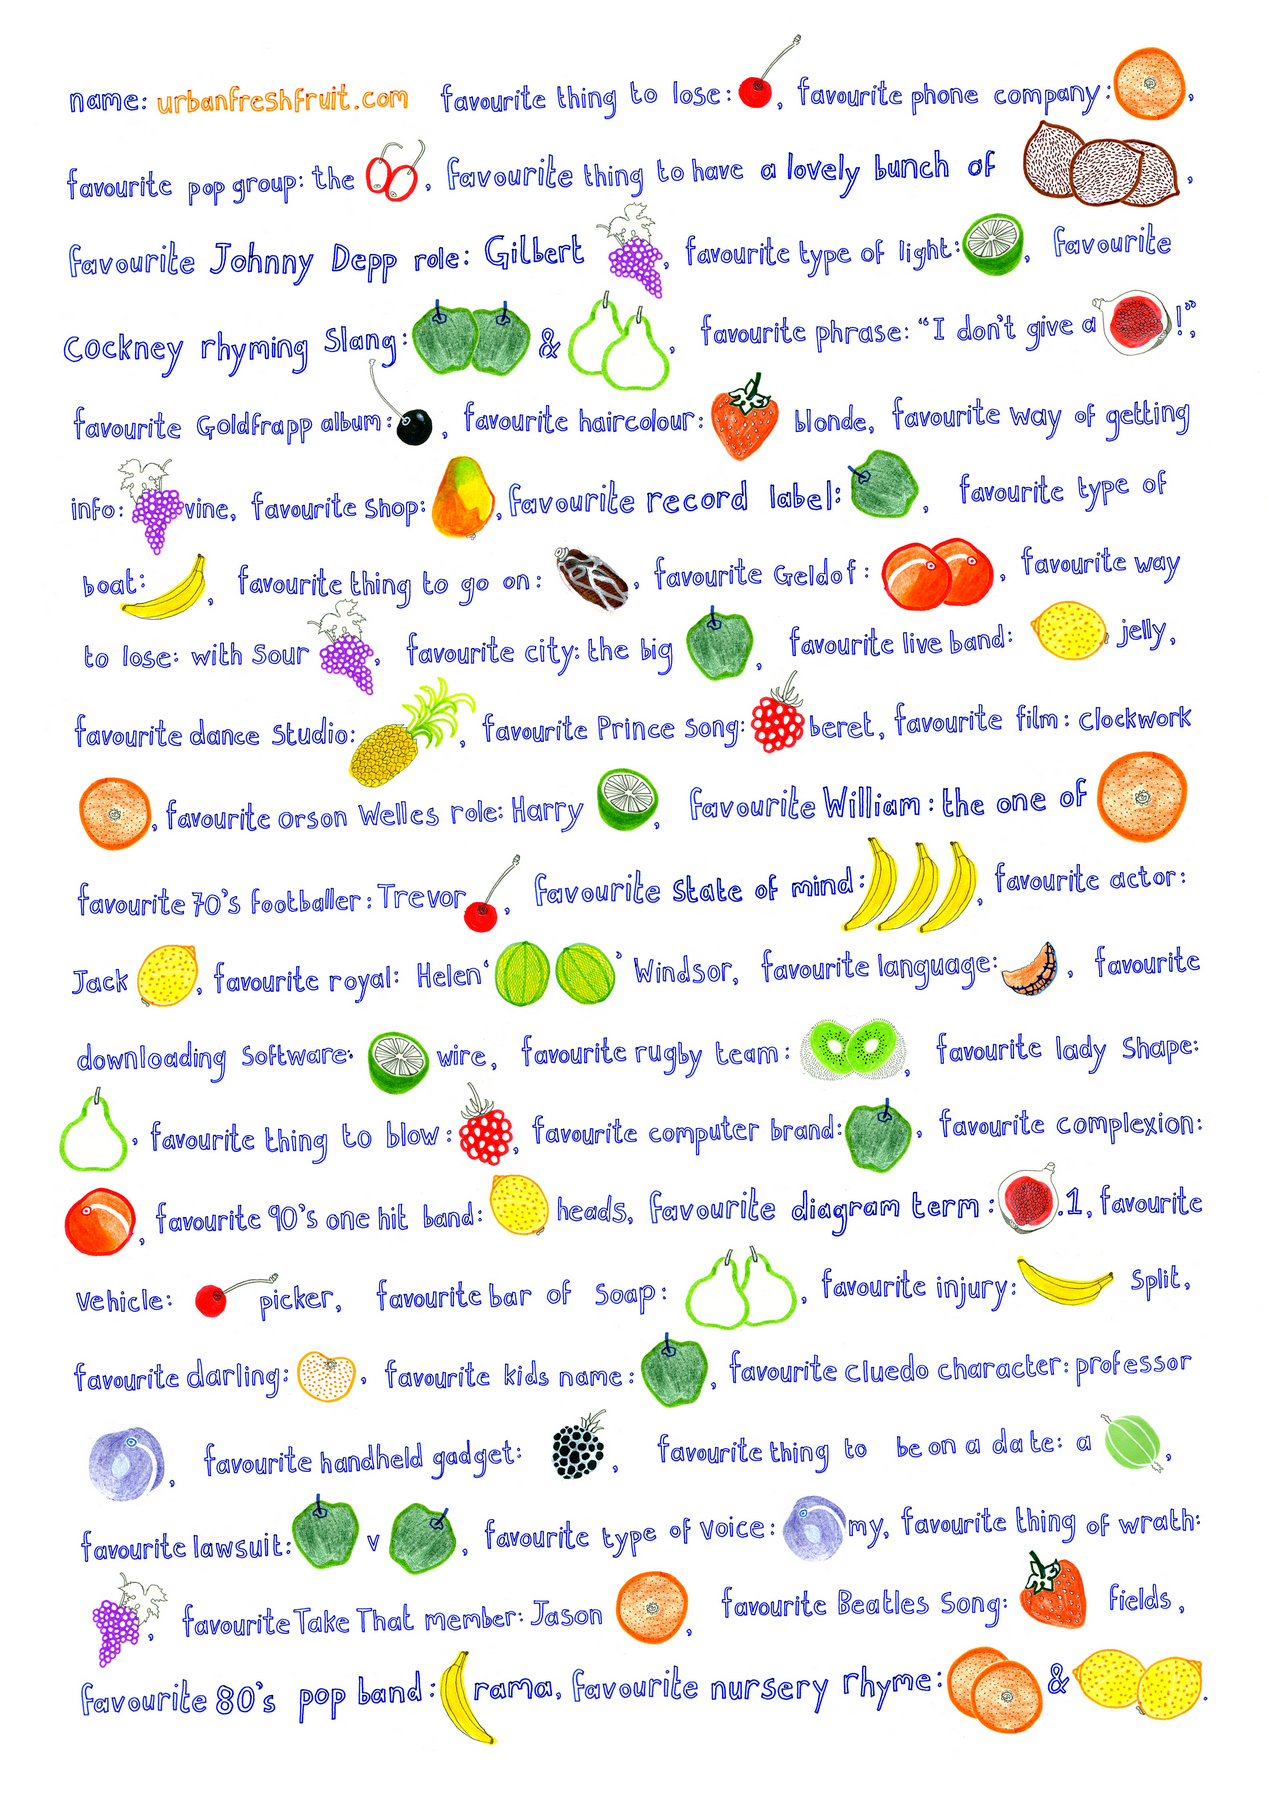 name: urbanfreshfruit.com favourite thing to lose: , favourite phone company: ,
favourite pop group: the , favourite thing to have a lovely bunch of ,
favourite Johnny Depp role: Gilbert , favourite type of light: , favourite
Cockney rhyming Slang: & , favourite phrase: “I don't give a !”,
favourite Goldfrapp album: , favourite haircolour: blonde, favourite way of getting
info: vine, favourite shop: , favourite record label: , favourite type of
boat: , favourite thing to go on: , favourite Geldof: , favourite way
to lose: with sour , favourite city: the big , favourite live band: jelly,
favourite dance studio: , favourite Prince song: beret, favourite film: clockwork
, favourite orson Welles role: Harry , favourite William: the one of
favourite 70's footballer: Trevor , favourite state of mind: , favourite actor:
Jack , favourite royal: Helen ‘ ’ Windsor, favourite language: , favourite
downloading software: wire, favourite rugby team: , favourite lady shape:
, favourite thing to blow: , favourite computer brand: , favourite complexion:
, favourite 90's one hit band: heads, favourite diagram term: .1, favourite
vehicle: picker, favourite bar of soap: , favourite injury: split,
favourite darling: , favourite kids name: , favourite cluedo character: professor
, favourite handheld gadget: , favourite thing to be on a date: a ,
favourite lawsuit: v , favourite type of voice: my, favourite thing of wrath:
, favourite Take That member: Jason , favourite Beatles Song: fields,
favourite 80's pop band: rama, favourite nursery rhyme: & .